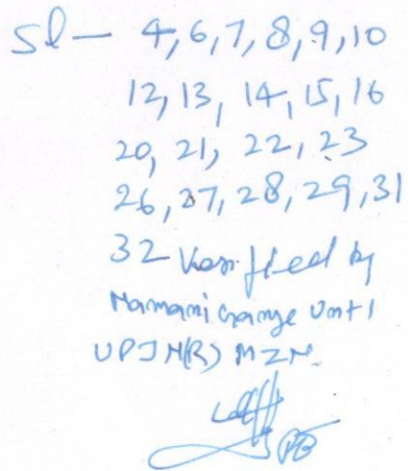 Sl — 4, 6, 7, 8, 9, 10
12, 13, 14, 15, 16
20, 21, 22, 23
26, 27, 28, 29, 31
32 Verified by
Namami Gange Unit
UPJN(R) MZN.